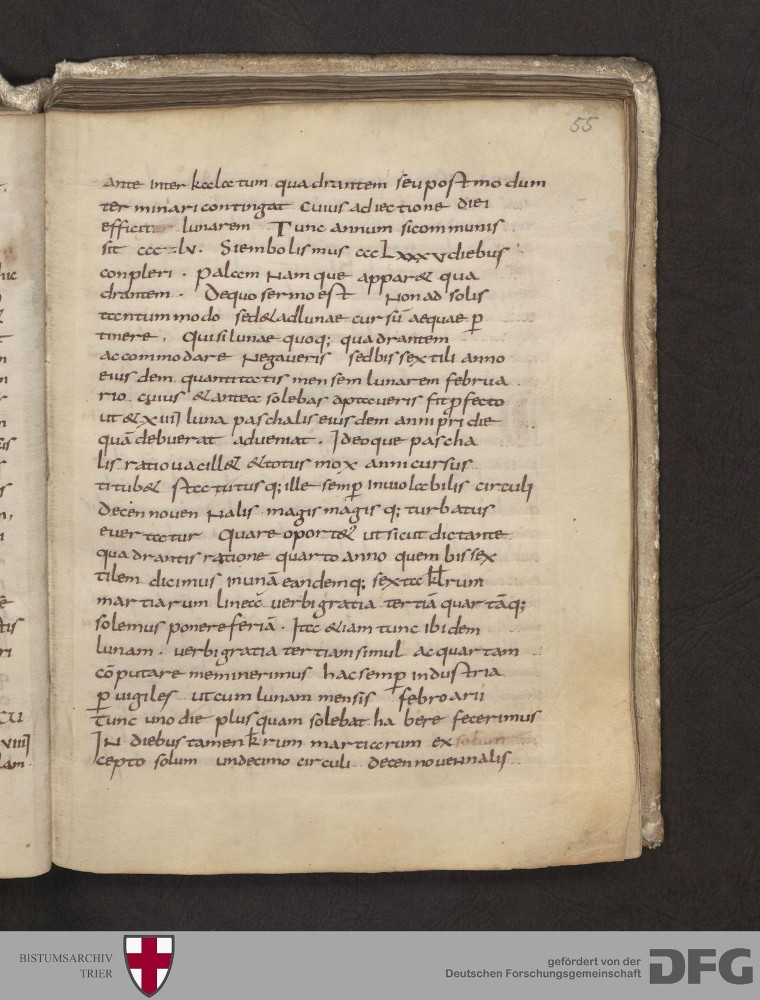 55
ante inter kalatum quadrantem seu postmodum
terminari contingat cuius adiectione diei
efficit lunarem Tunc annum si communis
sit ccclv. Si embolismus ccclxxxv diebus
conpleri. palam Namque apparet qua
drantem. De quo sermo est Non ad solis
tantum modo sed & ad lunae cursū aequae ꝑ
tinere. Qui si lunae quoq; quadrantem
accommodare Negaueris sed bissextili anno
eiusdem quantitatis mensem lunarem februa
rio. cuius & antea solebas aptaueris fit ꝓfecto
ut & xiiii luna paschalis eiusdem anni pridie
quā debuerat adueniat. Ideoque pascha
lis ratio uacill& & totus mox anni cursus
titub& statutusq; ille semꝑ inuiolabilis circuli
decennouenNalis magis magisq; turbatus
euertatur Quare oport& ut sicut dictante
quadrantis ratione quarto anno quem bissex
tilem dicimus in unā eandemq; sexta kl̄rum
martiarum lineā uerbi gratia tertiā quartāq;
solemus ponere feriā. Ita etiam tunc ibidem
lunam. uerbi gratia tertiam simul ac quartam
cōputare meminerimus hac semꝑ industria
ꝑuigiles ut cum lunam mensis febroarii
tunc uno die plus quam solebat habere fecerimus
IN diebus tamen kl̄rum martiarum ex
cepto solum undecimo circuli decennouenNalis
BISTUMSARCHIV
TRIER
gefördert von der
Deutschen Forschungsgemeinschaft
DFG